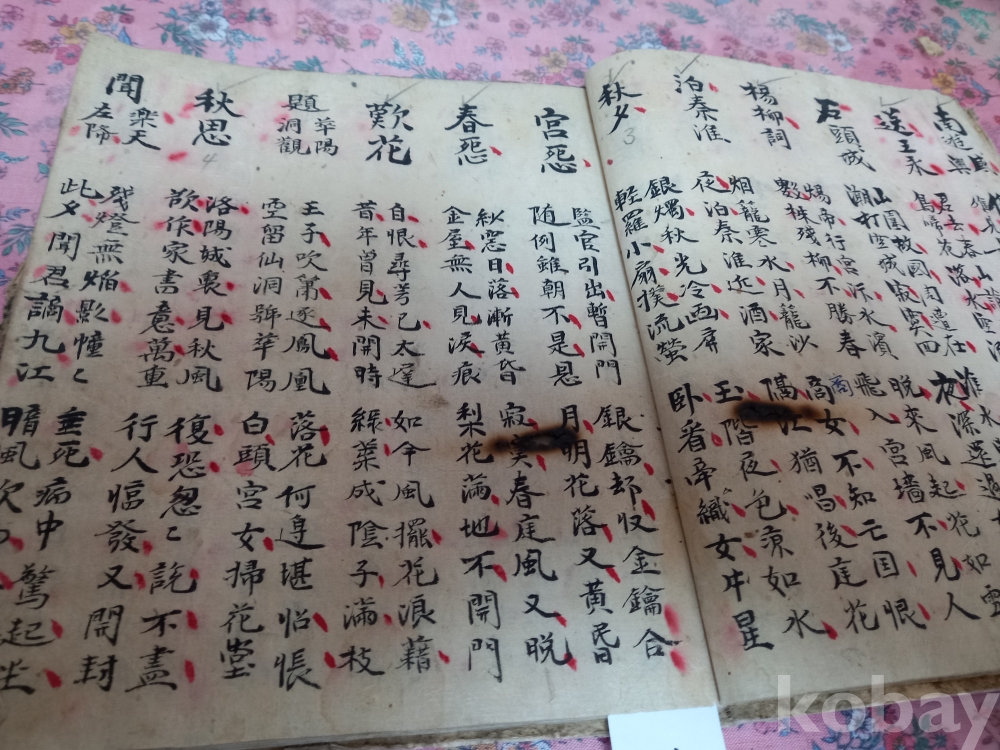 送王永
鳥啼花落水空流
石頭城
山圍故國周遭在
潮打空城寂寞回
夜深還過
楊柳詞
煬帝行宮汴水濱
數株殘柳不勝春
晩來風起花如雪
飛入宮墻不見人
泊秦淮
烟籠寒水月籠沙
夜泊秦淮近酒家
商女不知亡国恨
商
隔江猶唱後庭花
秋夕
3
銀燭秋光冷画屏
輕羅小扇撲流螢
玉階夜色凉如水
卧看牽織女牛星
宮怨
監官引出暫開門
随例雖朝不是恩
銀鑰却収金鑰合
月明花落又黃昏
春怨
紗窓日落漸黃昏
金屋無人見淚痕
寂寞春庭風又晚
梨花滿地不開門
歎花
自恨尋芳已太遲
昔年曾見未開時
如今風擺花浪藉
綠葉成陰子滿枝
題華陽洞觀
王子吹簫逐鳳凰
空留仙洞號華陽
落花何遽堪怊悵
白頭宮女掃花堂
秋思
4
洛陽城裏見秋風
欲作家書意萬重
復恐怱〻說不盡
行人臨發又開封
聞樂天左降
殘燈無焰影憧〻
此夕聞君謫九江
垂死病中驚起坐
暗風吹
kobay